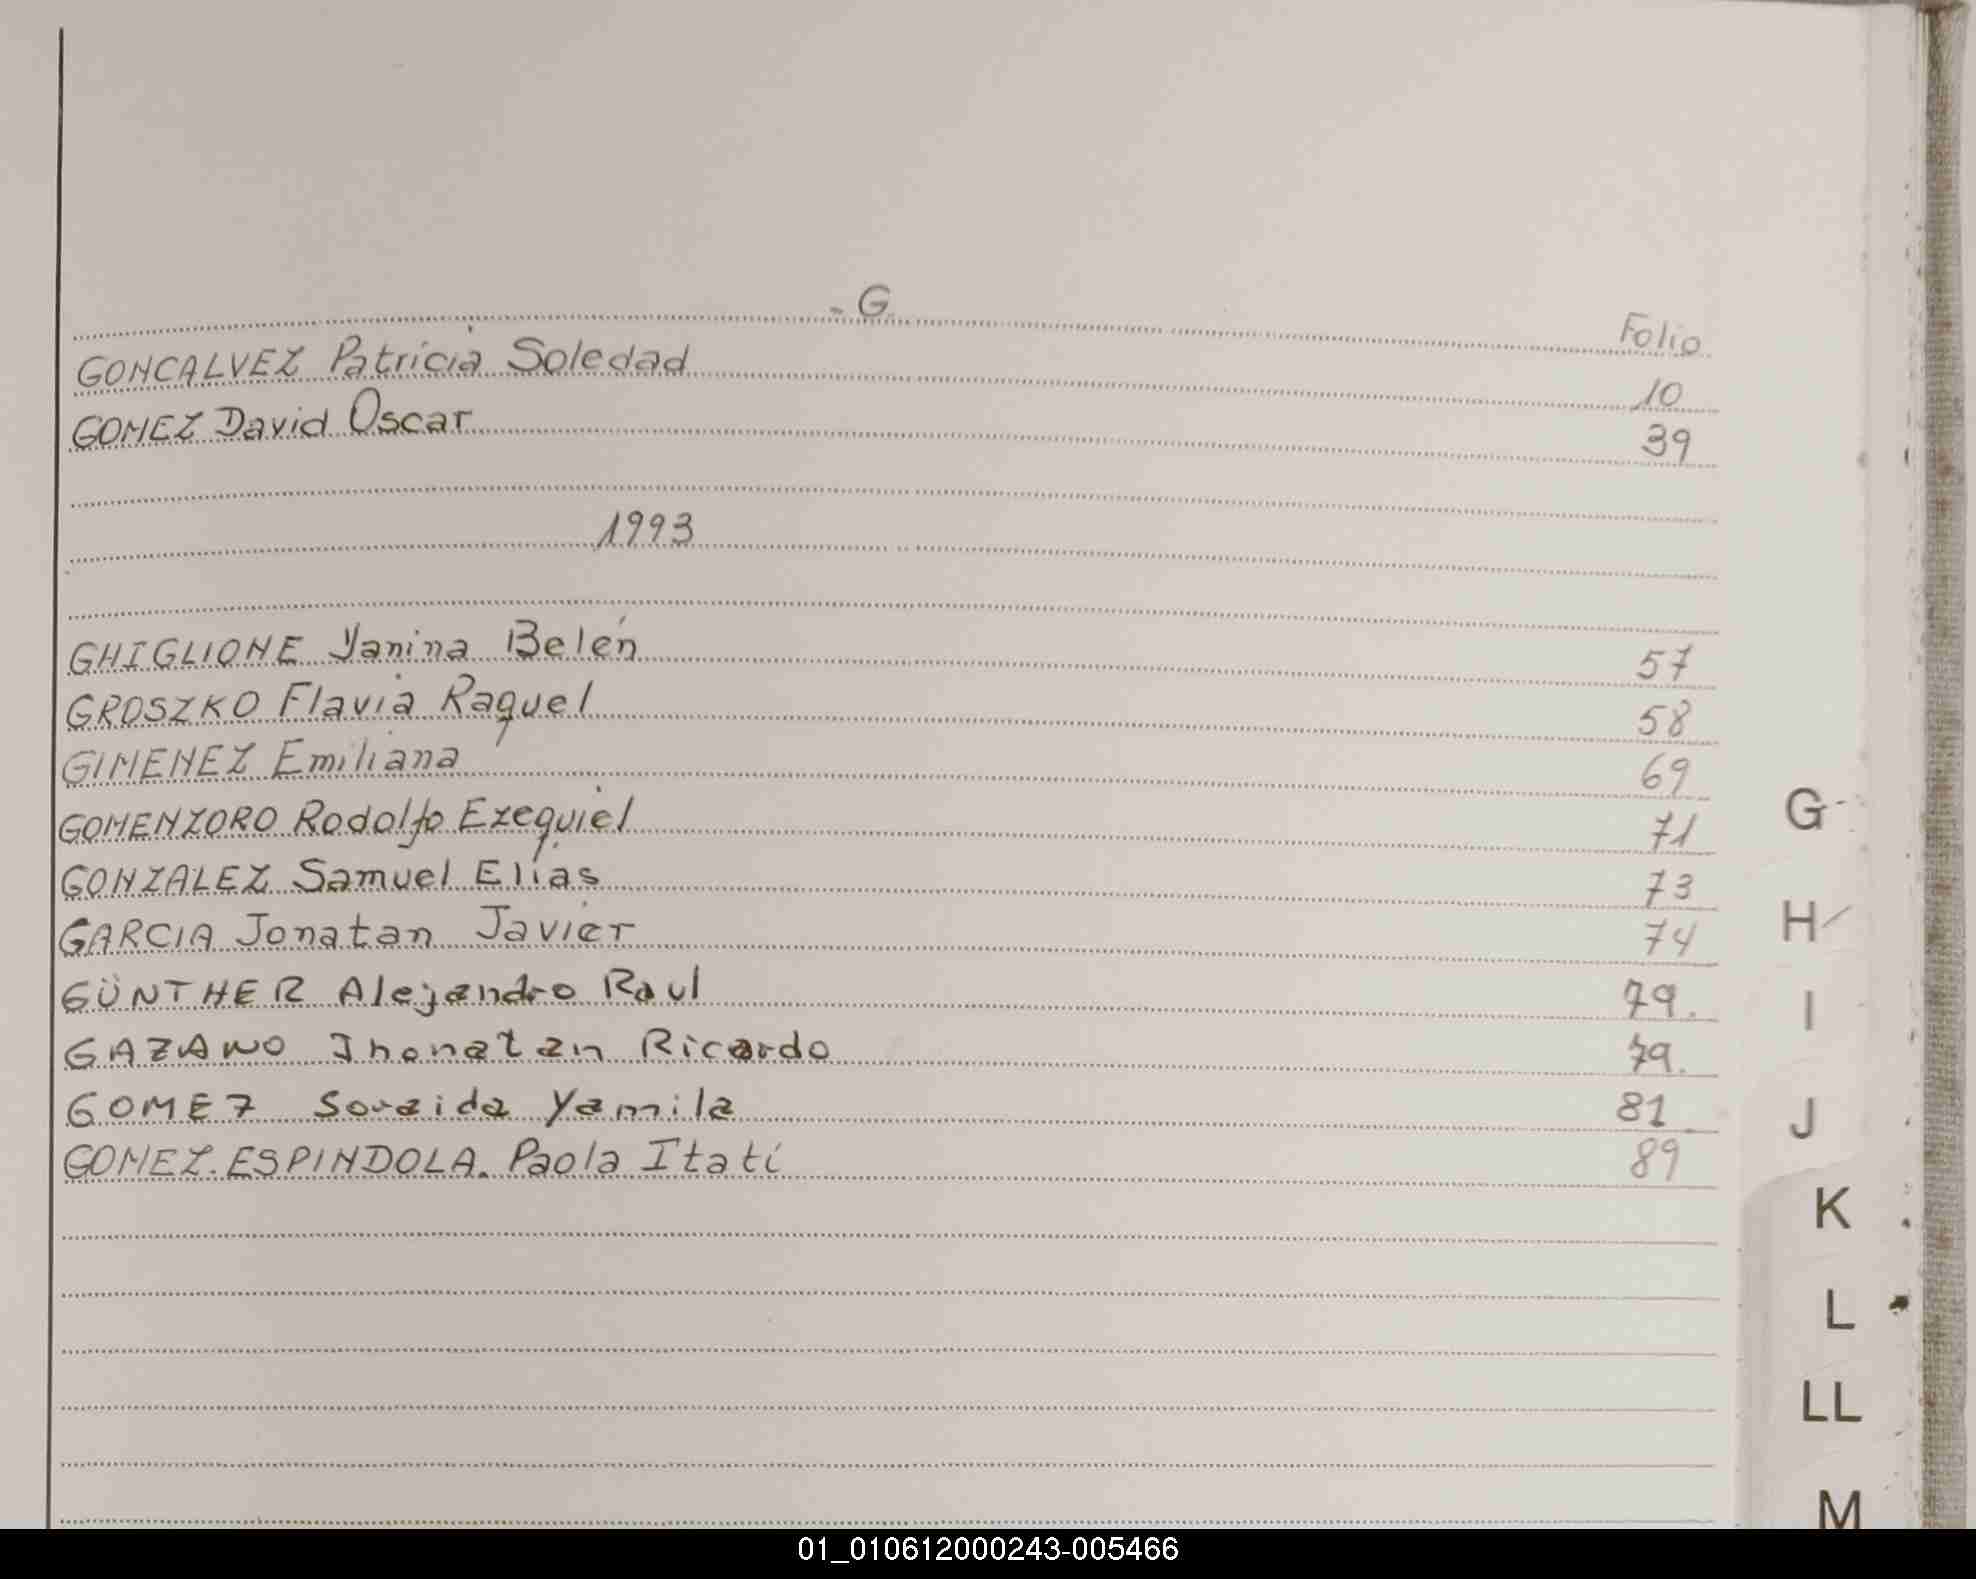 - G
Folio
GONCALVEZ Patricia Soledad 10
GOMEZ David Oscar 39
1993
GHIGLIONE Yanina Belén 57
GROSZKO Flavia Raquel 58
GIMENEZ Emiliana 69
GOMENZORO Rodolfo Ezequiel 71
GONZALEZ Samuel Elías 73
GARCIA Jonatan Javier 74
GÜNTHER Alejandro Raul 79.
GAZANO Jhonatan Ricardo 79.
GOMEZ Soraida Yamila 81
GOMEZ.ESPINDOLA. Paola Itatí 89
G
H
I
J
K
L
LL
M
01_010612000243-005466